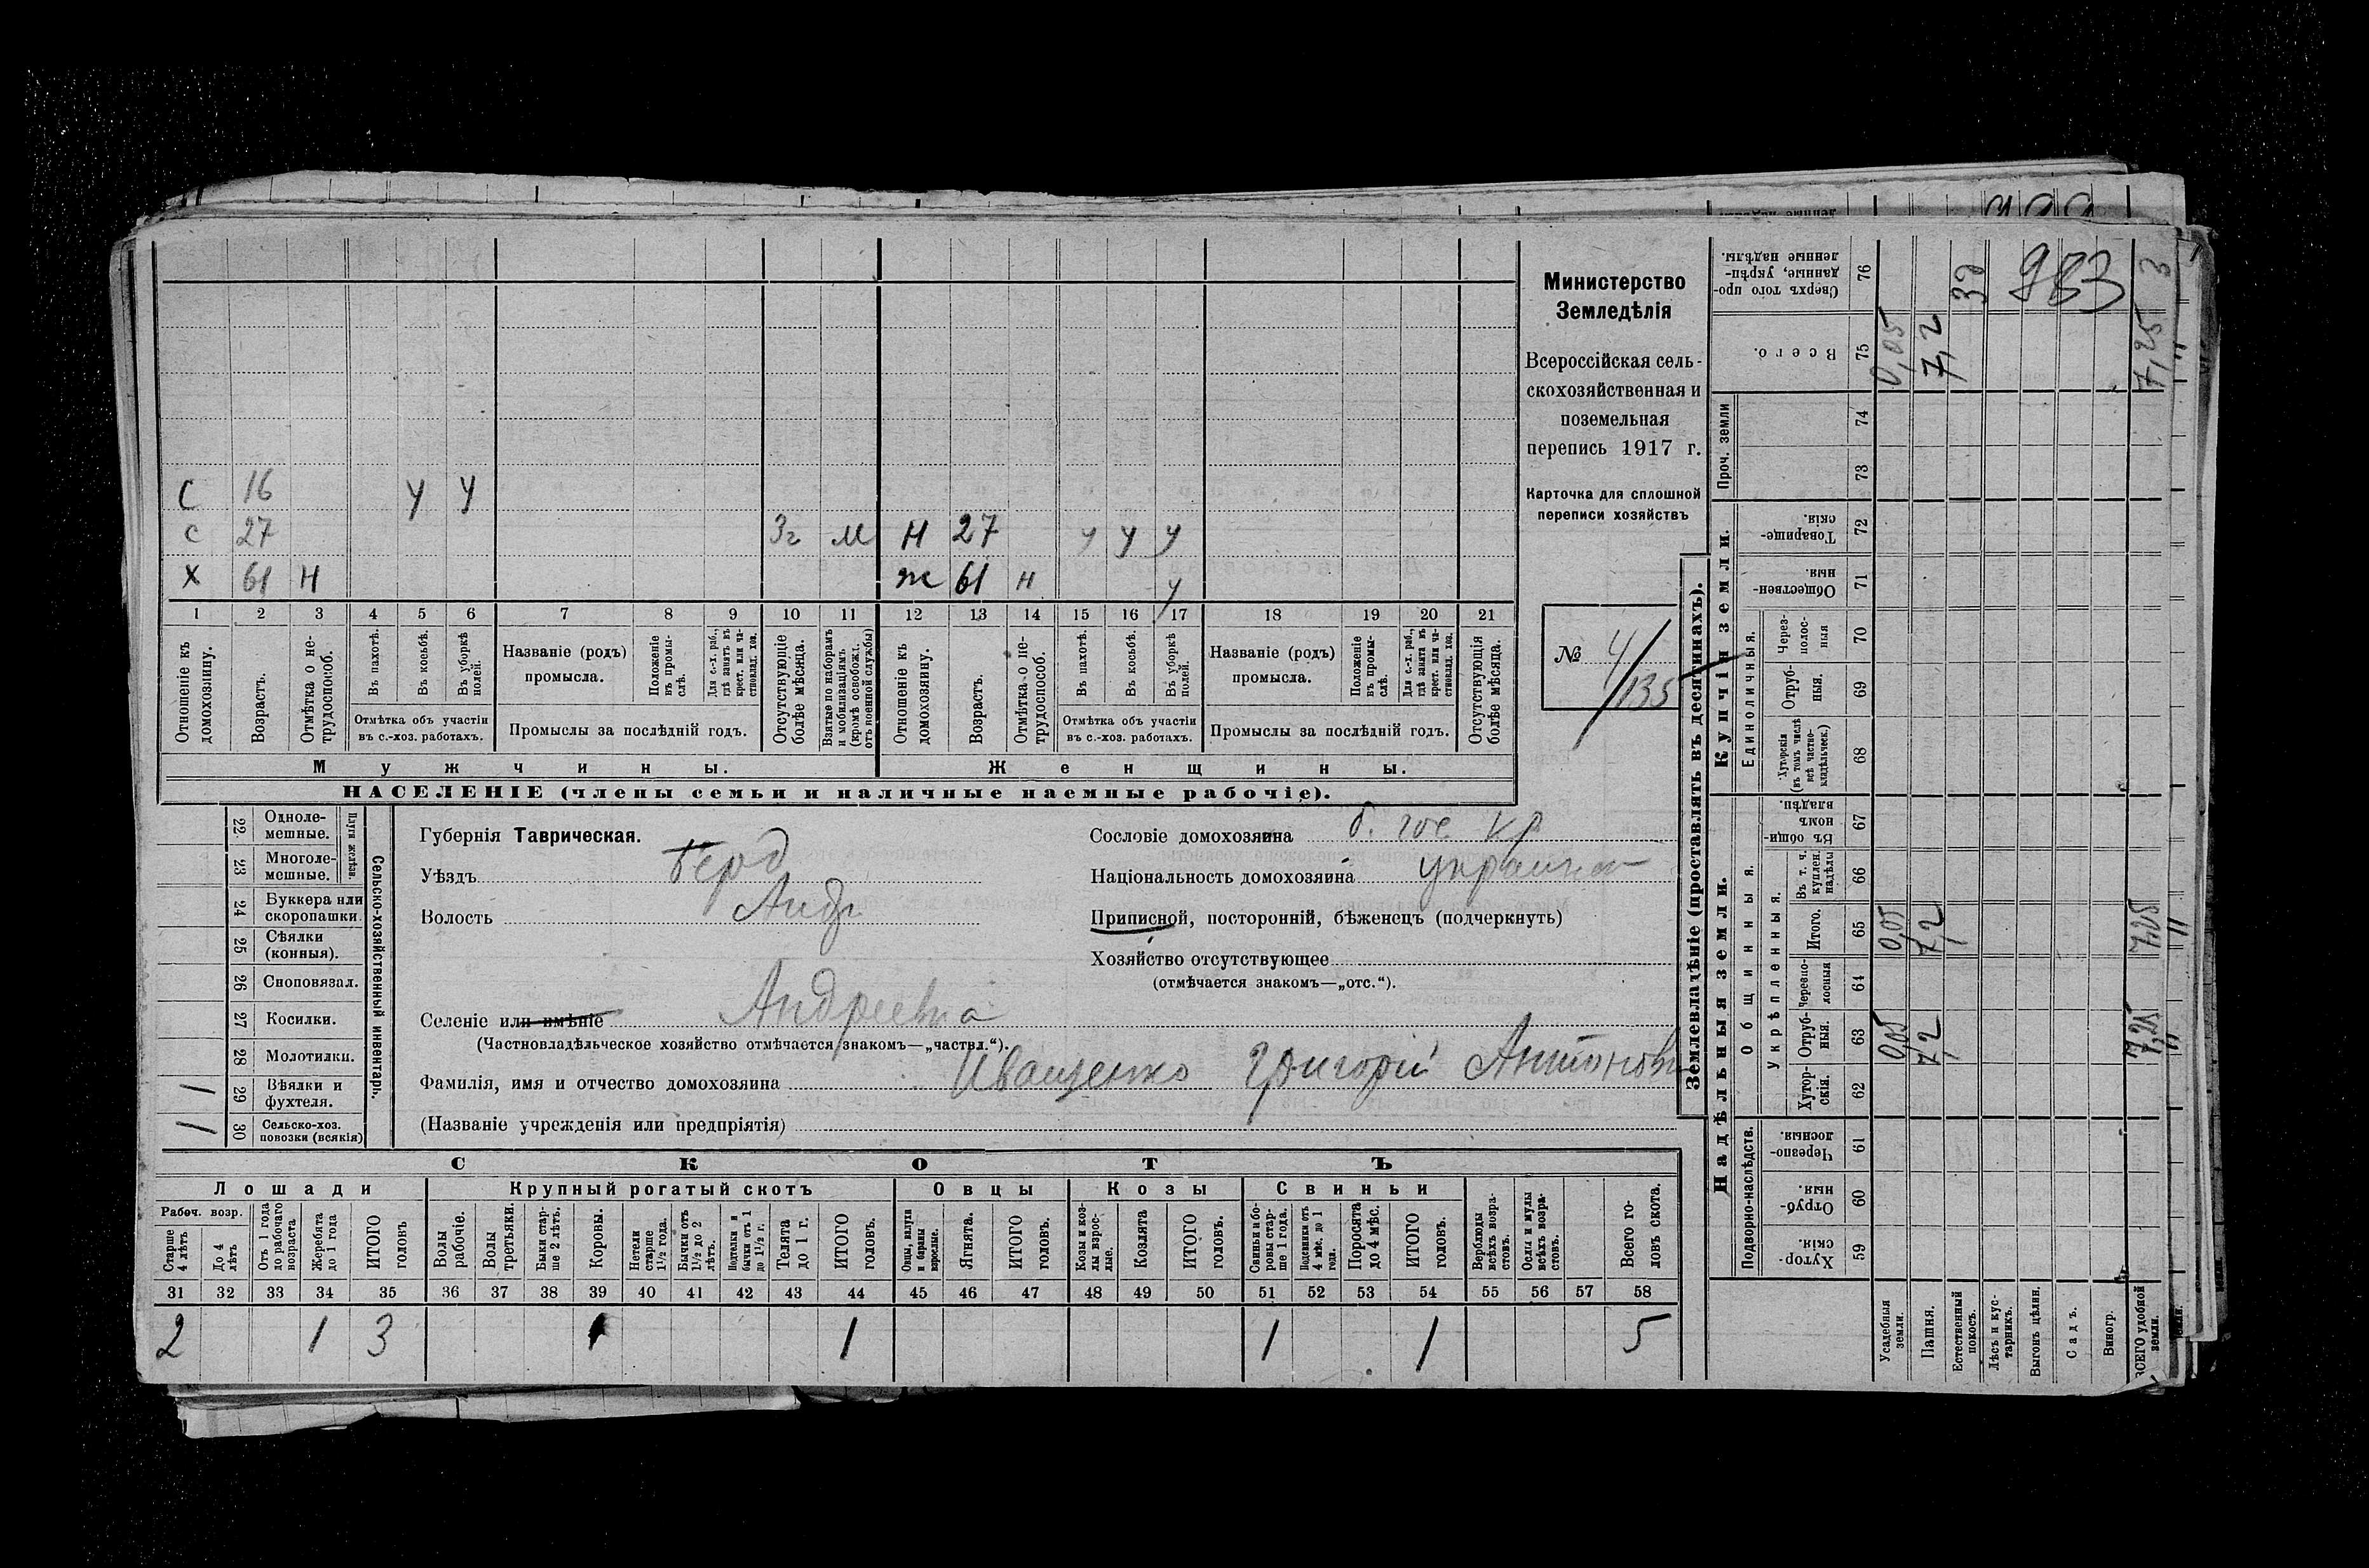 Министерство
Земледѣлія
Всероссійская сель-
скохозяйственная и
поземельная
перепись 1917 г.
Карточка для сплошной
переписи хозяйствъ
№ 4/135
С 16 У У
С 27 3г М Н 27 У У У
Х 61 Н Ж 61 Н У
1 2 3 4 5 6 7 8 9 10 11 12 13 14 15 16 17 18 19 20 21
Отношеніе къ домохозяину.
Возрастъ.
Отмѣтка о не-трудоспособ.
Въ пахотѣ.
Въ косьбѣ.
Въ уборкѣ полей.
Отмѣтка объ участіи
въ с.-хоз. работахъ.
Названіе (родъ)
промысла.
Положеніе въ промы-слѣ.
Для с.-х. раб., гдѣ занятъ въ крест. или ча-стновлад. хоз.
Промыслы за послѣдній годъ.
Отсутствующіе болѣе мѣсяца.
Взятые по наборамъ и мобилизаціямъ (кромѣ освобожд. отъ военной службы)
Отношеніе къ домохозяину.
Возрастъ.
Отмѣтка о не-трудоспособ.
Въ пахотѣ.
Въ косьбѣ.
Въ уборкѣ полей.
Отмѣтка объ участіи
въ с.-хоз. работахъ.
Названіе (родъ)
промысла.
Положеніе въ промы-слѣ.
Для с.-х. раб., гдѣ занята въ крест. или ча-стновлад. хоз.
Промыслы за послѣдній годъ.
Отсутствующія болѣе мѣсяца.
Мужчины. Женщины.
НАСЕЛЕНІЕ (члены семьи и наличные наемные рабочіе).
22 Одноле-мешные.
23 Многоле-мешные.
Плуги желѣзн.
24 Буккера или скоропашки.
25 Сѣялки (конныя).
26 Сноповязал.
27 Косилки.
28 Молотилки.
1 29 Вѣялки и фухтеля.
1 30 Сельско-хоз. повозки (всякія)
Сельско-хозяйственный инвентарь.
Губернія Таврическая.
Уѣздъ Берд
Волость Андр
Селеніе или имѣніе Андреевка
(Частновладѣльческое хозяйство отмѣчается знакомъ—„частвл.“).
Фамилія, имя и отчество домохозяина Иващенко Григорій Антонов
(Названіе учрежденія или предпріятія)
Сословіе домохозяина б. гос кр
Національность домохозяина украин
Приписной, посторонній, бѣженецъ (подчеркнуть)
Хозяйство отсутствующее
(отмѣчается знакомъ—„отс.“).
СКОТЪ
Лошади Крупный рогатый скотъ Овцы Козы Свиньи
Рабоч. возр.
Старше 4 лѣтъ
До 4 лѣтъ
Отъ 1 года до рабочаго возраста
Жеребята до 1 года
ИТОГО головъ
Волы рабочіе.
Волы третьяки.
Быки стар-ше 2 лѣтъ.
Коровы.
Нетели старше 1½ года.
Бычки отъ 1½ до 2 лѣтъ.
Подтелки и бычки отъ 1 до 1½ г.
Телята до 1 г.
ИТОГО головъ.
Овцы, валухи и бараны взрослые.
Ягнята.
ИТОГО головъ.
Козы и коз-лы взрос-лые.
Козлята
ИТОГО головъ.
Свиньи и бо-ровы стар-ше 1 года.
Подсвинки отъ 4 мѣс. до 1 года.
Поросята до 4 мѣс.
ИТОГО головъ.
Верблюды всѣхъ возра-стовъ.
Ослы и мулы всѣхъ возра-стовъ.
Всего го-ловъ скота.
31 32 33 34 35 36 37 38 39 40 41 42 43 44 45 46 47 48 49 50 51 52 53 54 55 56 57 58
2 1 3 1 1 1 1 5
Землевладѣніе (проставлять въ десятинахъ).
Надѣльныя земли. Купчія земли.
Подворно-наслѣдств.
Общинныя.
Укрѣпленныя.
Единоличныя.
Проч. земли
Хутор-скія. 59
Отруб-ныя. 60
Черезпо-лосныя 61
Хутор-скія. 62
Отруб-ныя. 63 0,05 7,2 7,25
Черезпо-лосныя 64
Итого. 65 0,05 7,2 7,25
Въ т. ч. куплен. надѣлы 66
Въ общи-номъ владѣн. 67
Хуторскія (въ томъ числѣ всѣ частно-владѣльческ.) 68
Отруб-ныя. 69
Через-полос-ныя 70
Обществен-ныя. 71
Товарище-скія. 72
73
74
Всего. 75 0,05 7,2 7,25
Сверхъ того про-данные, укрѣп-ленные надѣлы. 76
39
983
3
Усадебныя земли.
Пашня.
Естественный покосъ.
Лѣсъ и кус-тарникъ.
Выгонъ цѣлин.
Садъ.
Виногр.
ВСЕГО удобной земли.